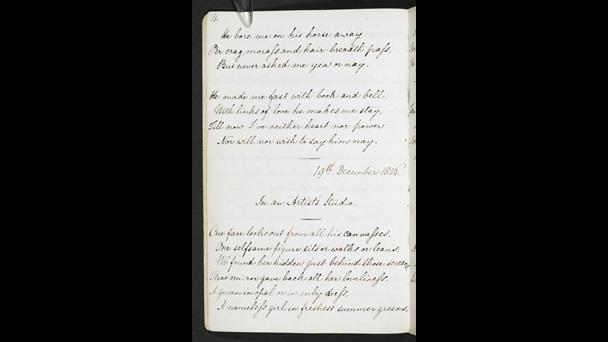 4
He bore me on his horse away
Oer crag, morass and hair-breadth pass,
But never asked me yea or nay.
He made me fast with book and bell,
With links of love he makes me stay,
Till now I've neither heart nor power
Nor will nor wish to say him nay.
19th December 1856.
In an Artist's Studio.
One face looks out from all his canvasses,
One selfsame figure sits or walks or leans;
We found her hidden just behind those screens,
That mirror gave back all her loveliness.
A queen in opal or in ruby dress,
A nameless girl in freshest summer greens,